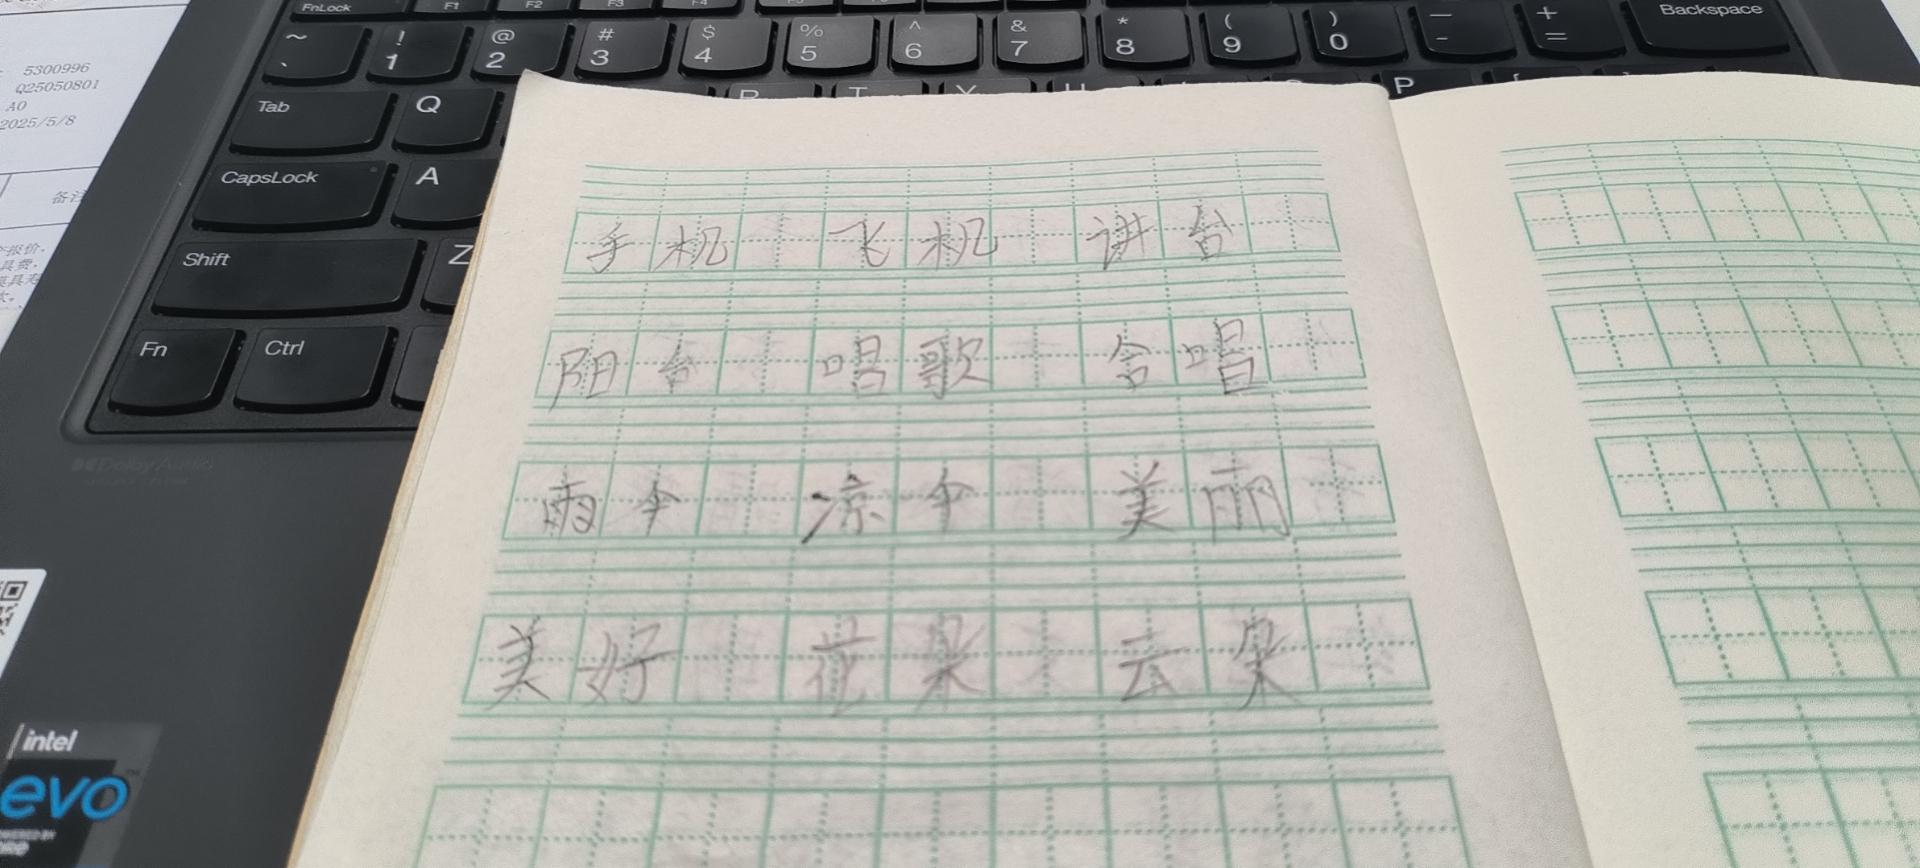 5300996
Q25050801
A0
2025/5/8
备注
报价,
具费,
FnLock F1 F2 F3 F4
~ ` ! 1 @ 2 # 3 $ 4 % 5 ^ 6 & 7 * 8 ( 9 ) 0 _ - + = Backspace
Tab Q R T Y U P
CapsLock A
Shift Z
Fn Ctrl
Dolby Audio
intel
evo
手机 飞机 讲台
阳台 唱歌 合唱
雨伞 凉伞 美丽
美好 花朵 云朵